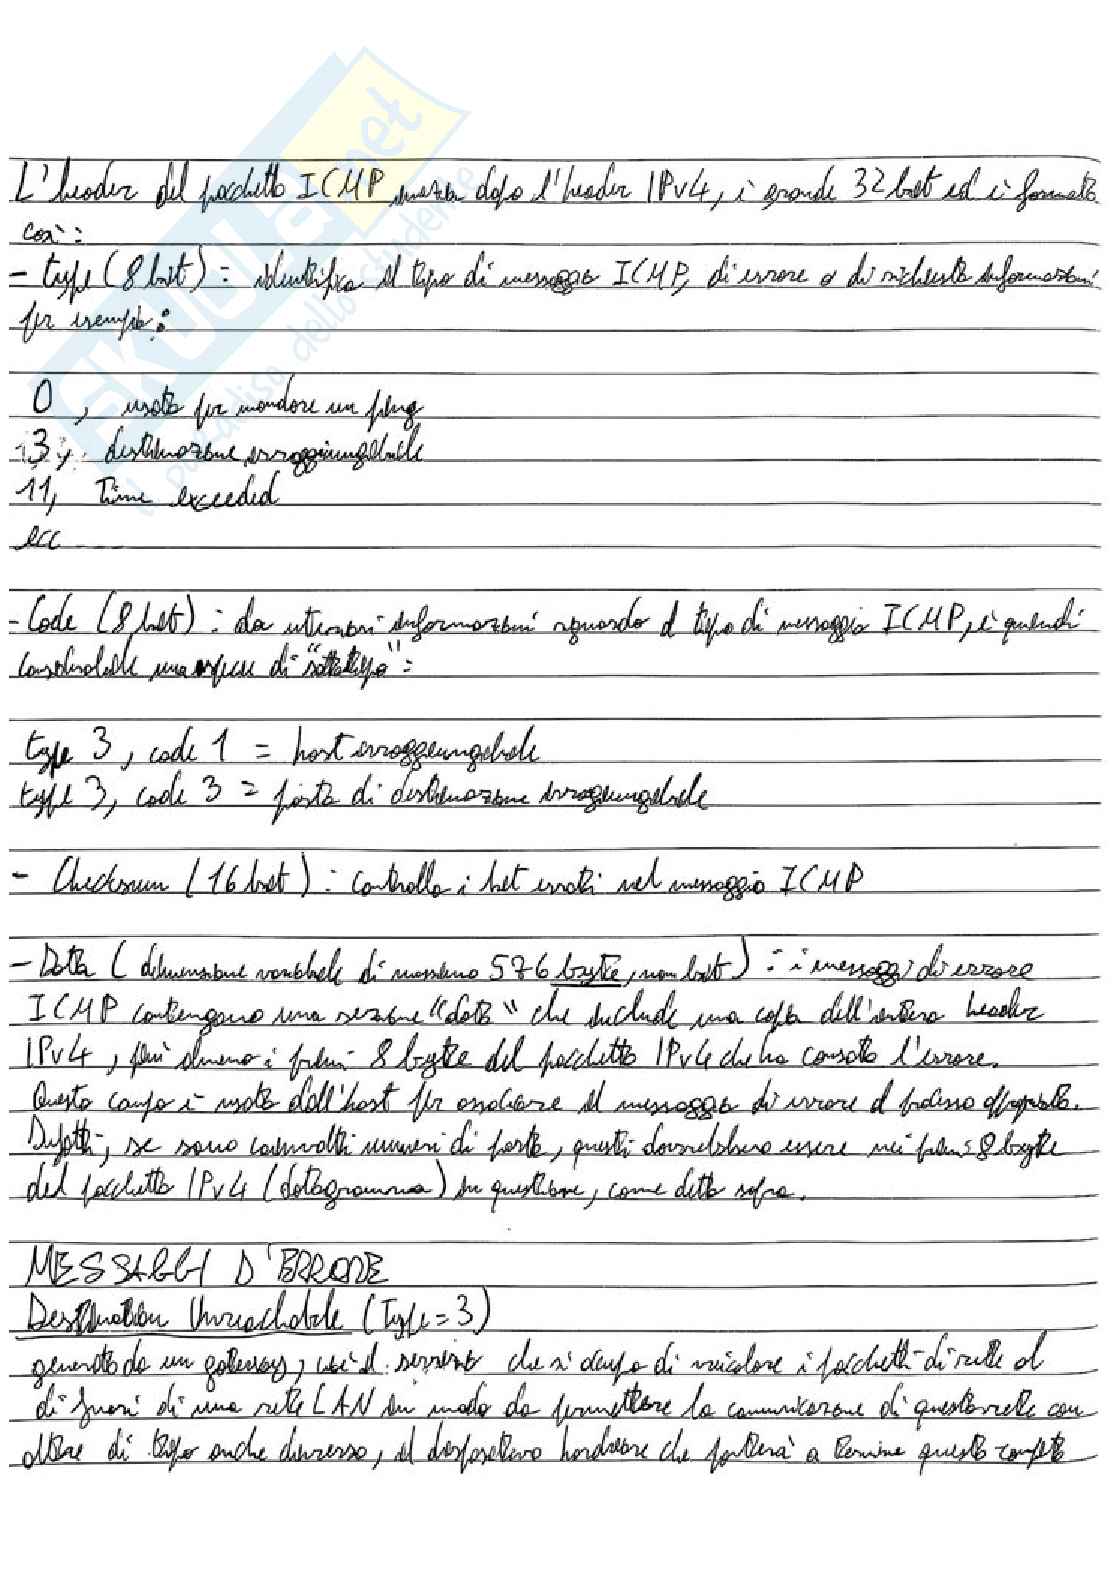 L'header del pacchetto ICMP inizia dopo l'header IPv4, è grande 32 bit ed è formato
così:
- type (8 bit): identifica il tipo di messaggio ICMP, di errore o di richiesta informazioni
per esempio:
0, usato per mandare un ping
3, destinazione irraggiungibile
11, Time exceeded
ecc ....
- Code (8 bit): da ulteriori informazioni riguardo il tipo di messaggio ICMP, è quindi
considerabile una specie di "sottotipo":
type 3, code 1 = host irraggiungibile
type 3, code 3 = porta di destinazione irraggiungibile
- Checksum (16 bit): controlla i bit errati nel messaggio ICMP
- Data (dimensione variabile di massimo 576 bytte, non bit): i messaggi di errore
ICMP contengono una sezione "data" che include una copia dell'intero header
IPv4, più almeno i primi 8 bytte del pacchetto IPv4 che ha causato l'errore.
Questo campo è usato dall'host per associare il messaggio di errore al processo appropriato.
Difatti, se sono coinvolti numeri di porta, questi dovrebbero essere nei primi 8 bytte
del pacchetto IPv4 (datagramma) in questione, come detto sopra.
MESSAGGI D'ERRORE
Destination Unreachable (Type=3)
generato da un gateway, cioè il servizio che si occupa di veicolare i pacchetti di rete al
di fuori di una rete LAN in modo da permettere la comunicazione di questa rete con
altre di tipo anche diverso, il dispositivo hardware che porterà a termine questo compito
skuola.net
il paradiso dello studente